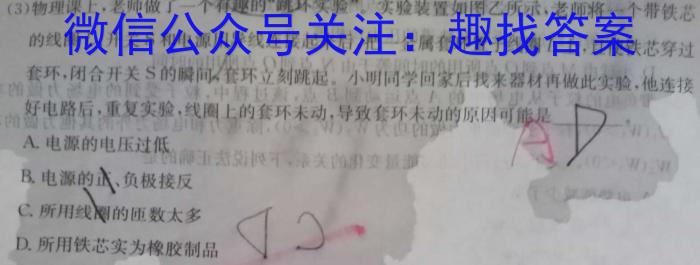 (3)物理课上,老师做了一个有趣的“跳环实验”。实验装置如图乙所示,老师将一个带铁芯
的线 套 铁芯穿过
微信公众号关注：趣找答案
套环,闭合开关S的瞬间,套环立刻跳起。小明同学回家后找来器材再做此实验,他连接
好电路后,重复实验,线圈上的套环未动,导致套环未动的原因可能是
A. 电源的电压过低
B. 电源的正、负极接反
C. 所用线圈的匝数太多
D. 所用铁芯实为橡胶制品
A D